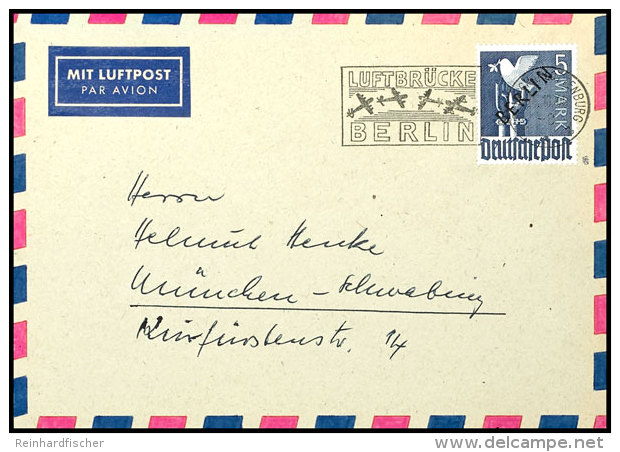 MIT LUFTPOST
PAR AVION
LUFTBRÜCKE
BERLIN
5
MARK
BERLIN
Deutsche Post
ENBURG
Herrn
Helmut Henke
München - Schwabing
Kurfürstenstr. 14
Reinhardfischer
delcampe.net